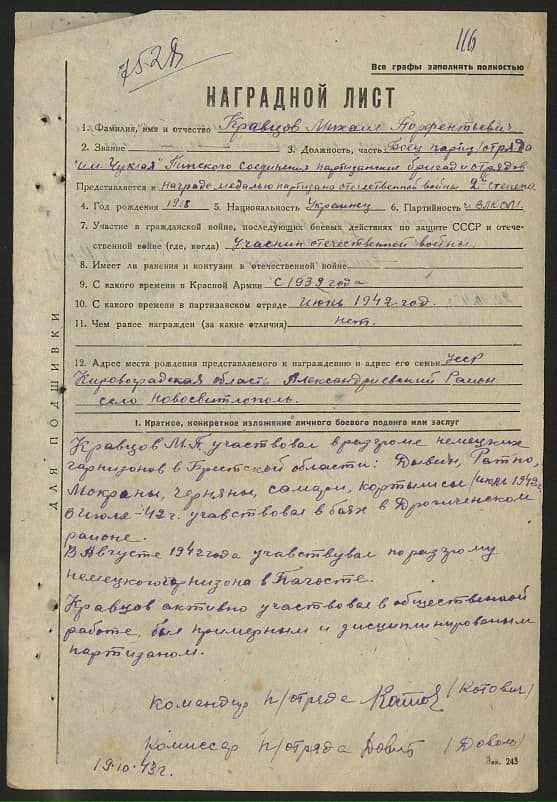 116
752
Все графы заполнять полностью
НАГРАДНОЙ ЛИСТ
1. Фамилия, имя и отчество Кравцов Михаил Порфентьевич
2. Звание 3. Должность, часть Боец парт/отряда
"им. Чуклая" Пинского соединения партизанских бригад и отрядов
Представляется к награде медалью партизана отечественной войны 2й степени
4. Год рождения 1918 5. Национальность Украинец 6. Партийность ч. ВЛКСМ.
7. Участие в гражданской войне, последующих боевых действиях по защите СССР и отече-
ственной войне (где, когда) Учасник отечественной войны.
8. Имеет ли ранения и контузии в отечественной войне
9. С какого времени в Красной Армии с 1939 года
10. С какого времени в партизанском отряде Июнь 1942 год.
11. Чем ранее награжден (за какие отличия) нет.
12. Адрес места рождения представляемого к награждению и адрес его семьи УССР
Кировоградская область Александриевский Район
село Новосвитлополь.
I. Краткое, конкретное изложение личного боевого подвига или заслуг
Кравцов М.П. участвовал в раздроме немецких
гарнизонов в Бритской области: Дывин, Ратно,
Мокраны, Черняны, Самари, Кортылисы (июль 1942г.
В июле-42г. учавствовал в боях в Дрогиченском
районе.
В Августе 1942 года учавствувал по раздрому
немецкого гарнизона в Погосте.
Кравцов активно участвовал в общественной
работе, был примерным и дисциплинированым
партизаном.
Командир п/отряда (Котович)
Комиссар п/отряда
19.10.43г.
Зак. 243
ДЛЯ ПОДШИВКИ